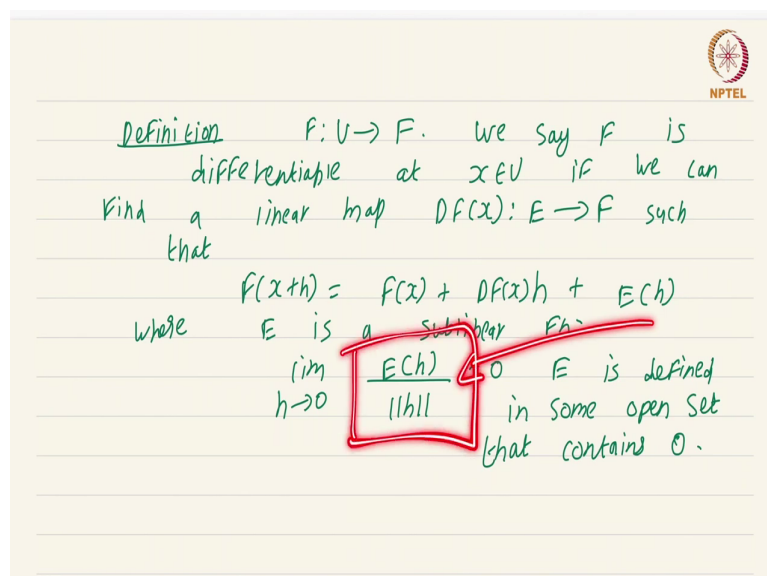 NPTEL
Definition F: U → F. We say F is
differentiable at x ∈ U if we can
Find a linear map DF(x): E → F such
that
F(x+h) = F(x) + DF(x)h + E(h)
where E is a sublinear Fn.
lim E(h) 0 E is defined
h→0 ||h|| in some open set
that contains 0.